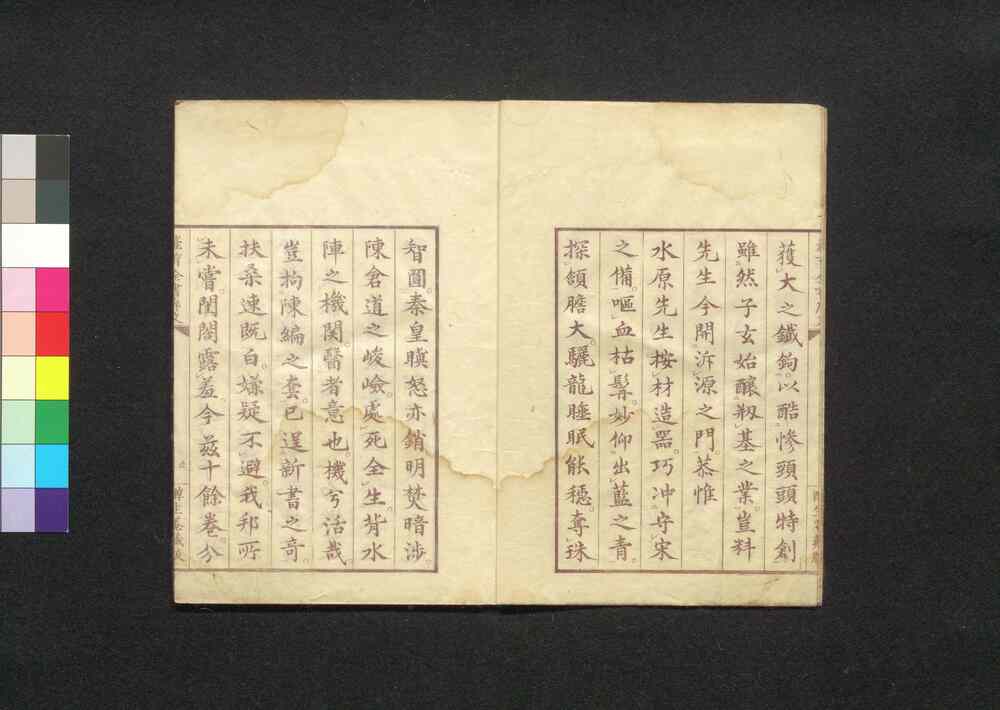 獲大之鐵鉤以酷慘頭頭特創
雖然子玄始釀剏基之業豈料
先生今開泝源之門恭惟
水原先生桉材造器巧冲守宋
之備嘔血枯髯妙仰出藍之青
探頷膽大驪龍睡眠能穏奪珠
智圖秦皇瞋怒亦銷明焚暗涉
陳倉道之峻嶮處死全生背水
陣之機関醫者意也機兮活哉
豈拘陳編之套已逞新書之奇
扶桑速既白嫌疑不避我邦所
未嘗閨閤露羞今茲十餘卷分